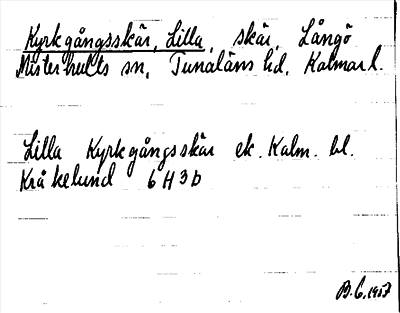 Kyrkgångsskär, Lilla, skär, Långö
Misterhults sn, Tunaläns hd, Kalmar l.
Lilla Kyrkgångsskär ek. Kalm. bl.
Kråkelund 6H3b
B.C. 1957